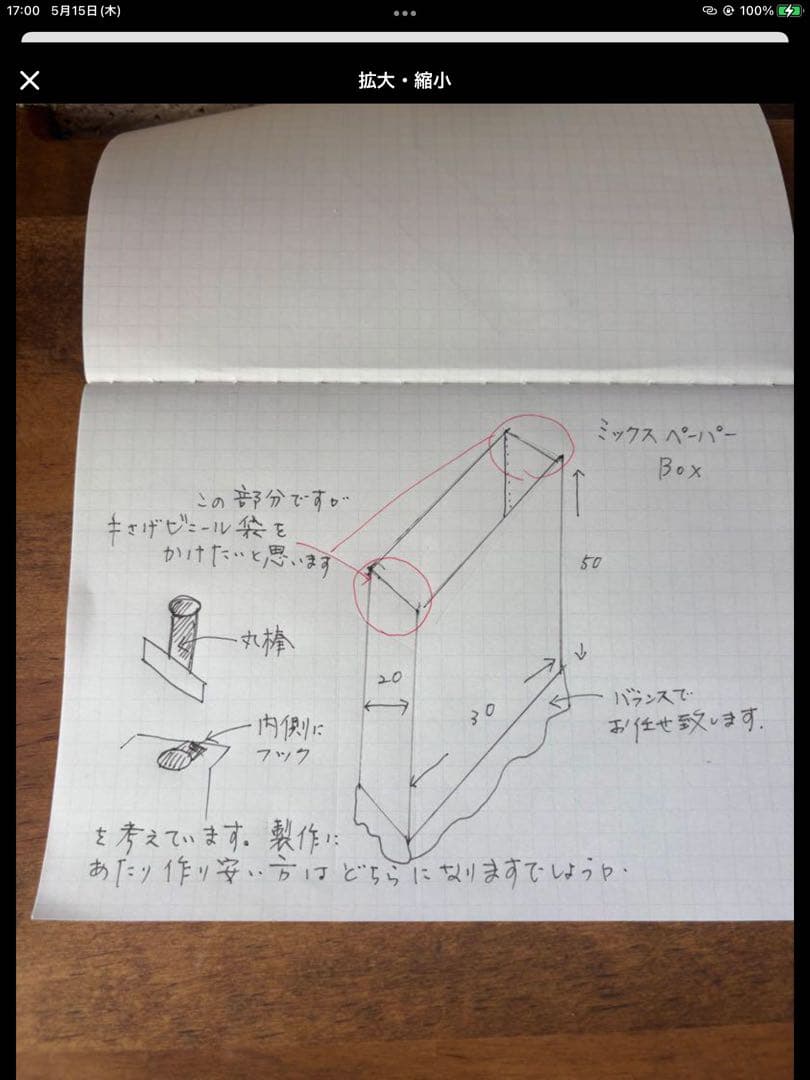 17:00 5月15日(木)
100%
拡大・縮小
ミックスペーパー
Box
この部分ですが
手さげビニール袋を
かけたいと思います
50
丸棒
20
30
バランスで
お任せ致します.
内側に
フック
を考えています。製作に
あたり作り安い方はどちらになりますでしょうか.